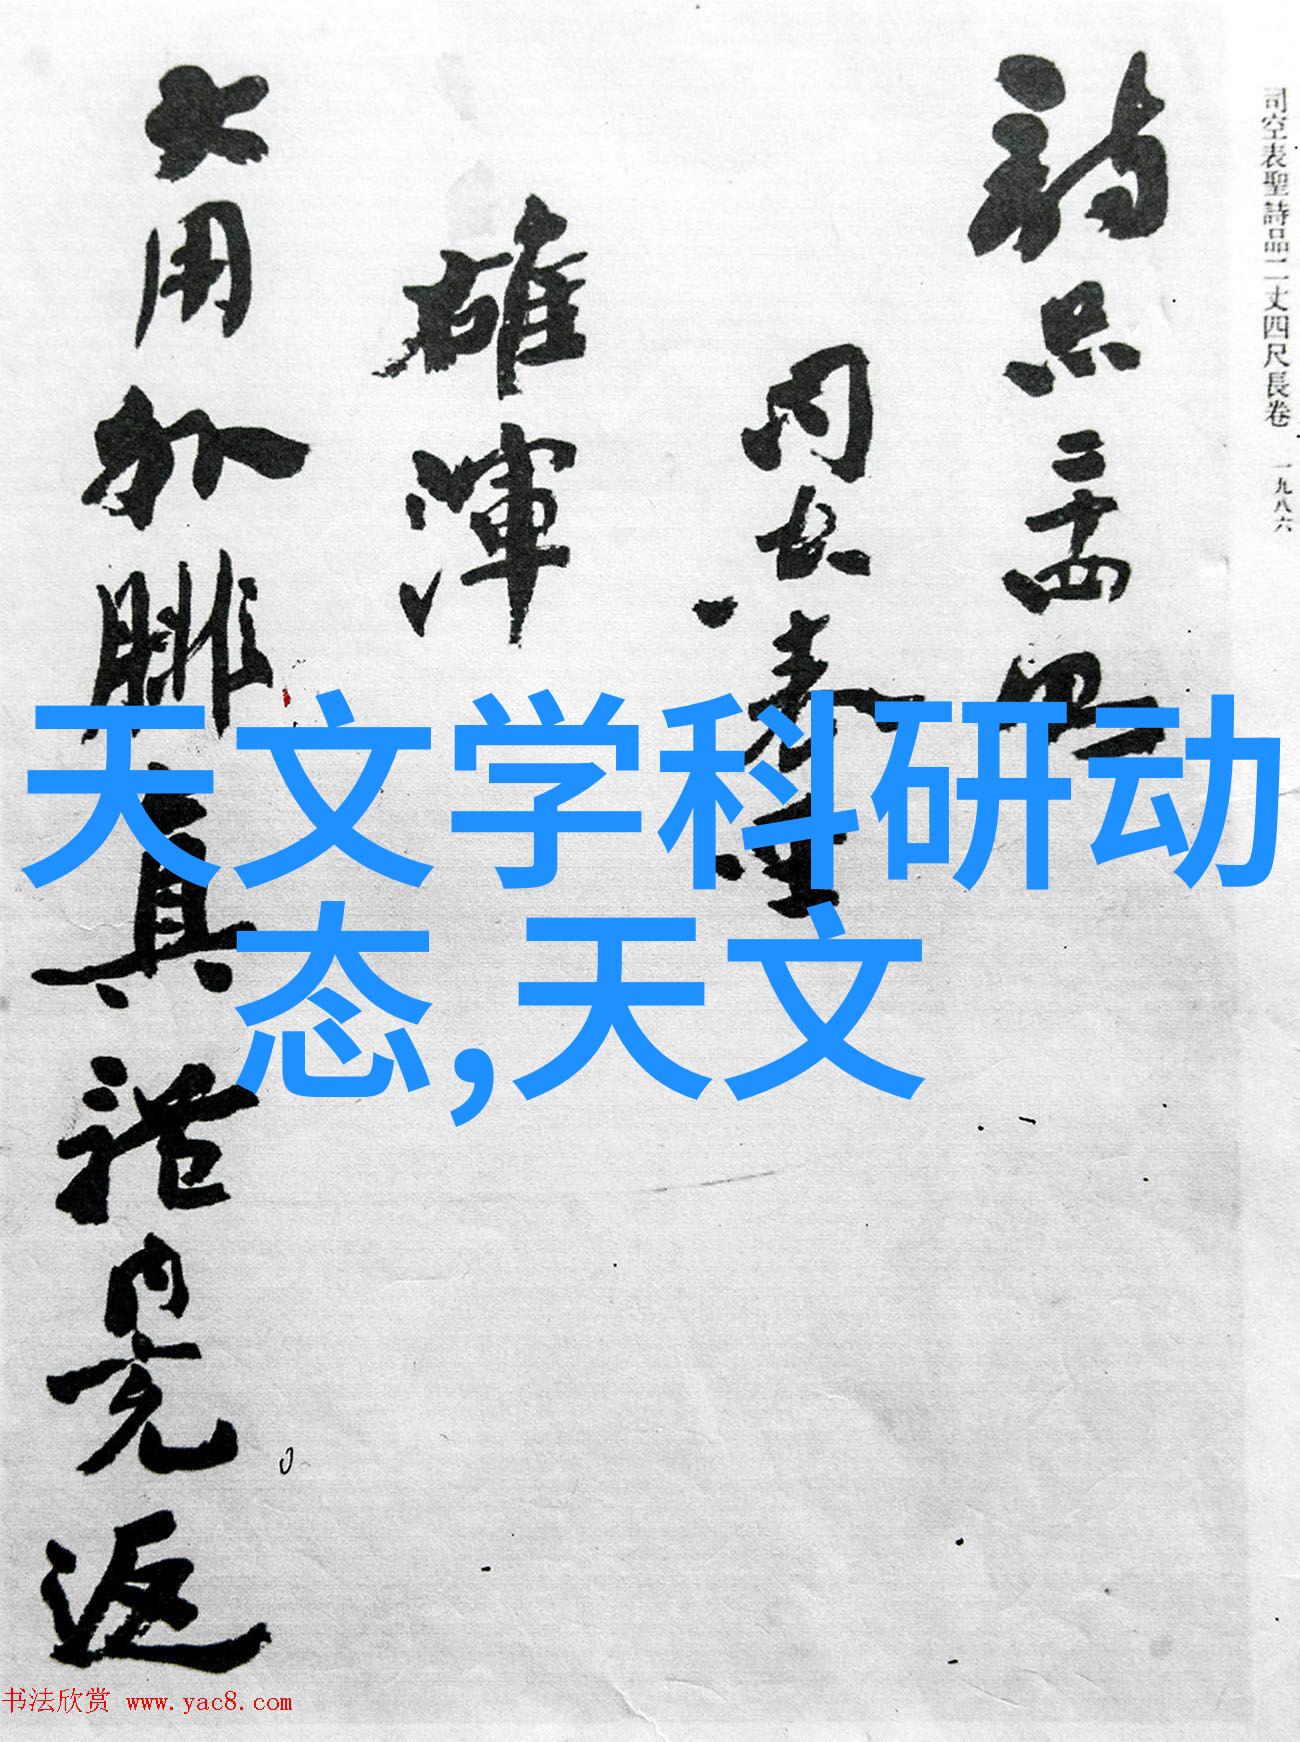 司空表聖詩品二丈四尺長卷 一九八六
詩品二十四則
司空表聖
雄渾
大用外腓真體內充返
天文学科研动
态,天文
书法欣赏 www.yac8.com